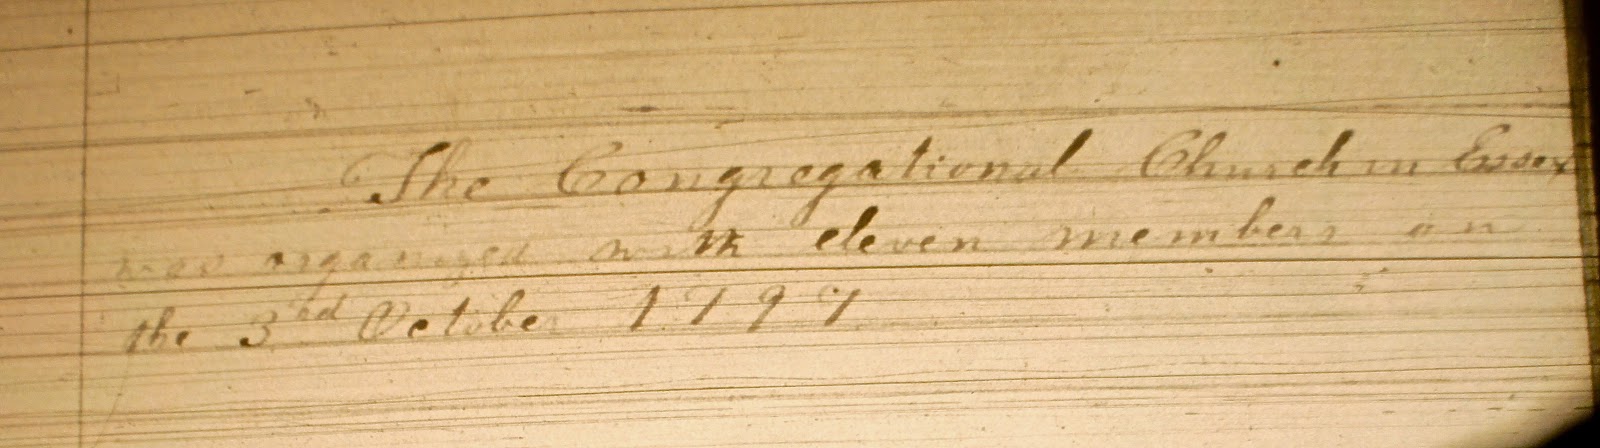 The Congregational Church in Essex
was organized with eleven members on
the 3rd October 1797